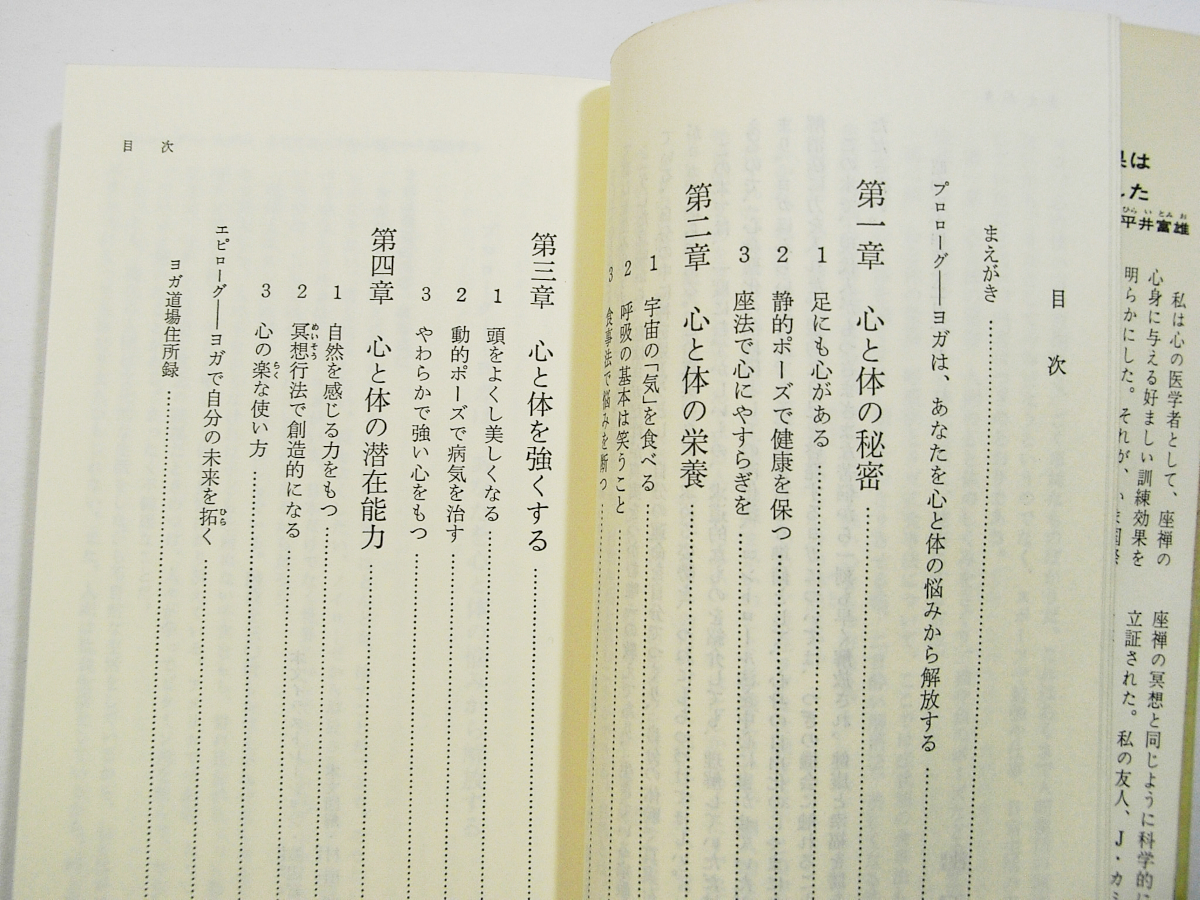 目次
まえがき
プロローグ――ヨガは、あなたを心と体の悩みから解放する
第一章 心と体の秘密
1 足にも心がある
2 静的ポーズで健康を保つ
3 座法で心にやすらぎを
第二章 心と体の栄養
1 宇宙の「気」を食べる
2 呼吸の基本は笑うこと
3 食事法で悩みを断つ
第三章 心と体を強くする
1 頭をよくし美しくなる
2 動的ポーズで病気を治す
3 やわらかで強い心をもつ
第四章 心と体の潜在能力
1 自然を感じる力をもつ
2 冥想行法で創造的になる
めいそう
3 心の楽な使い方
らく
エピローグ――ヨガで自分の未来を拓く
ひら
ヨガ道場住所録
目次
は
した
ひらいとみお
平井富雄
私は心の医学者として、座禅の
心身に与える好ましい訓練効果を
明らかにした。それが、
座禅の冥想と同じように科学的に
立証された。私の友人、J・カミ